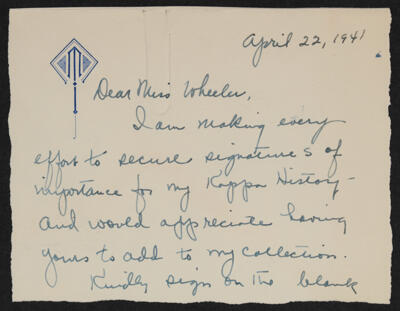 April 22, 1941
Dear Miss Wheeler,
I am making every
effort to secure signatures of
importance for my Kappa History -
and would appreciate having
yours to add to my collection.
Kindly sign on the blank